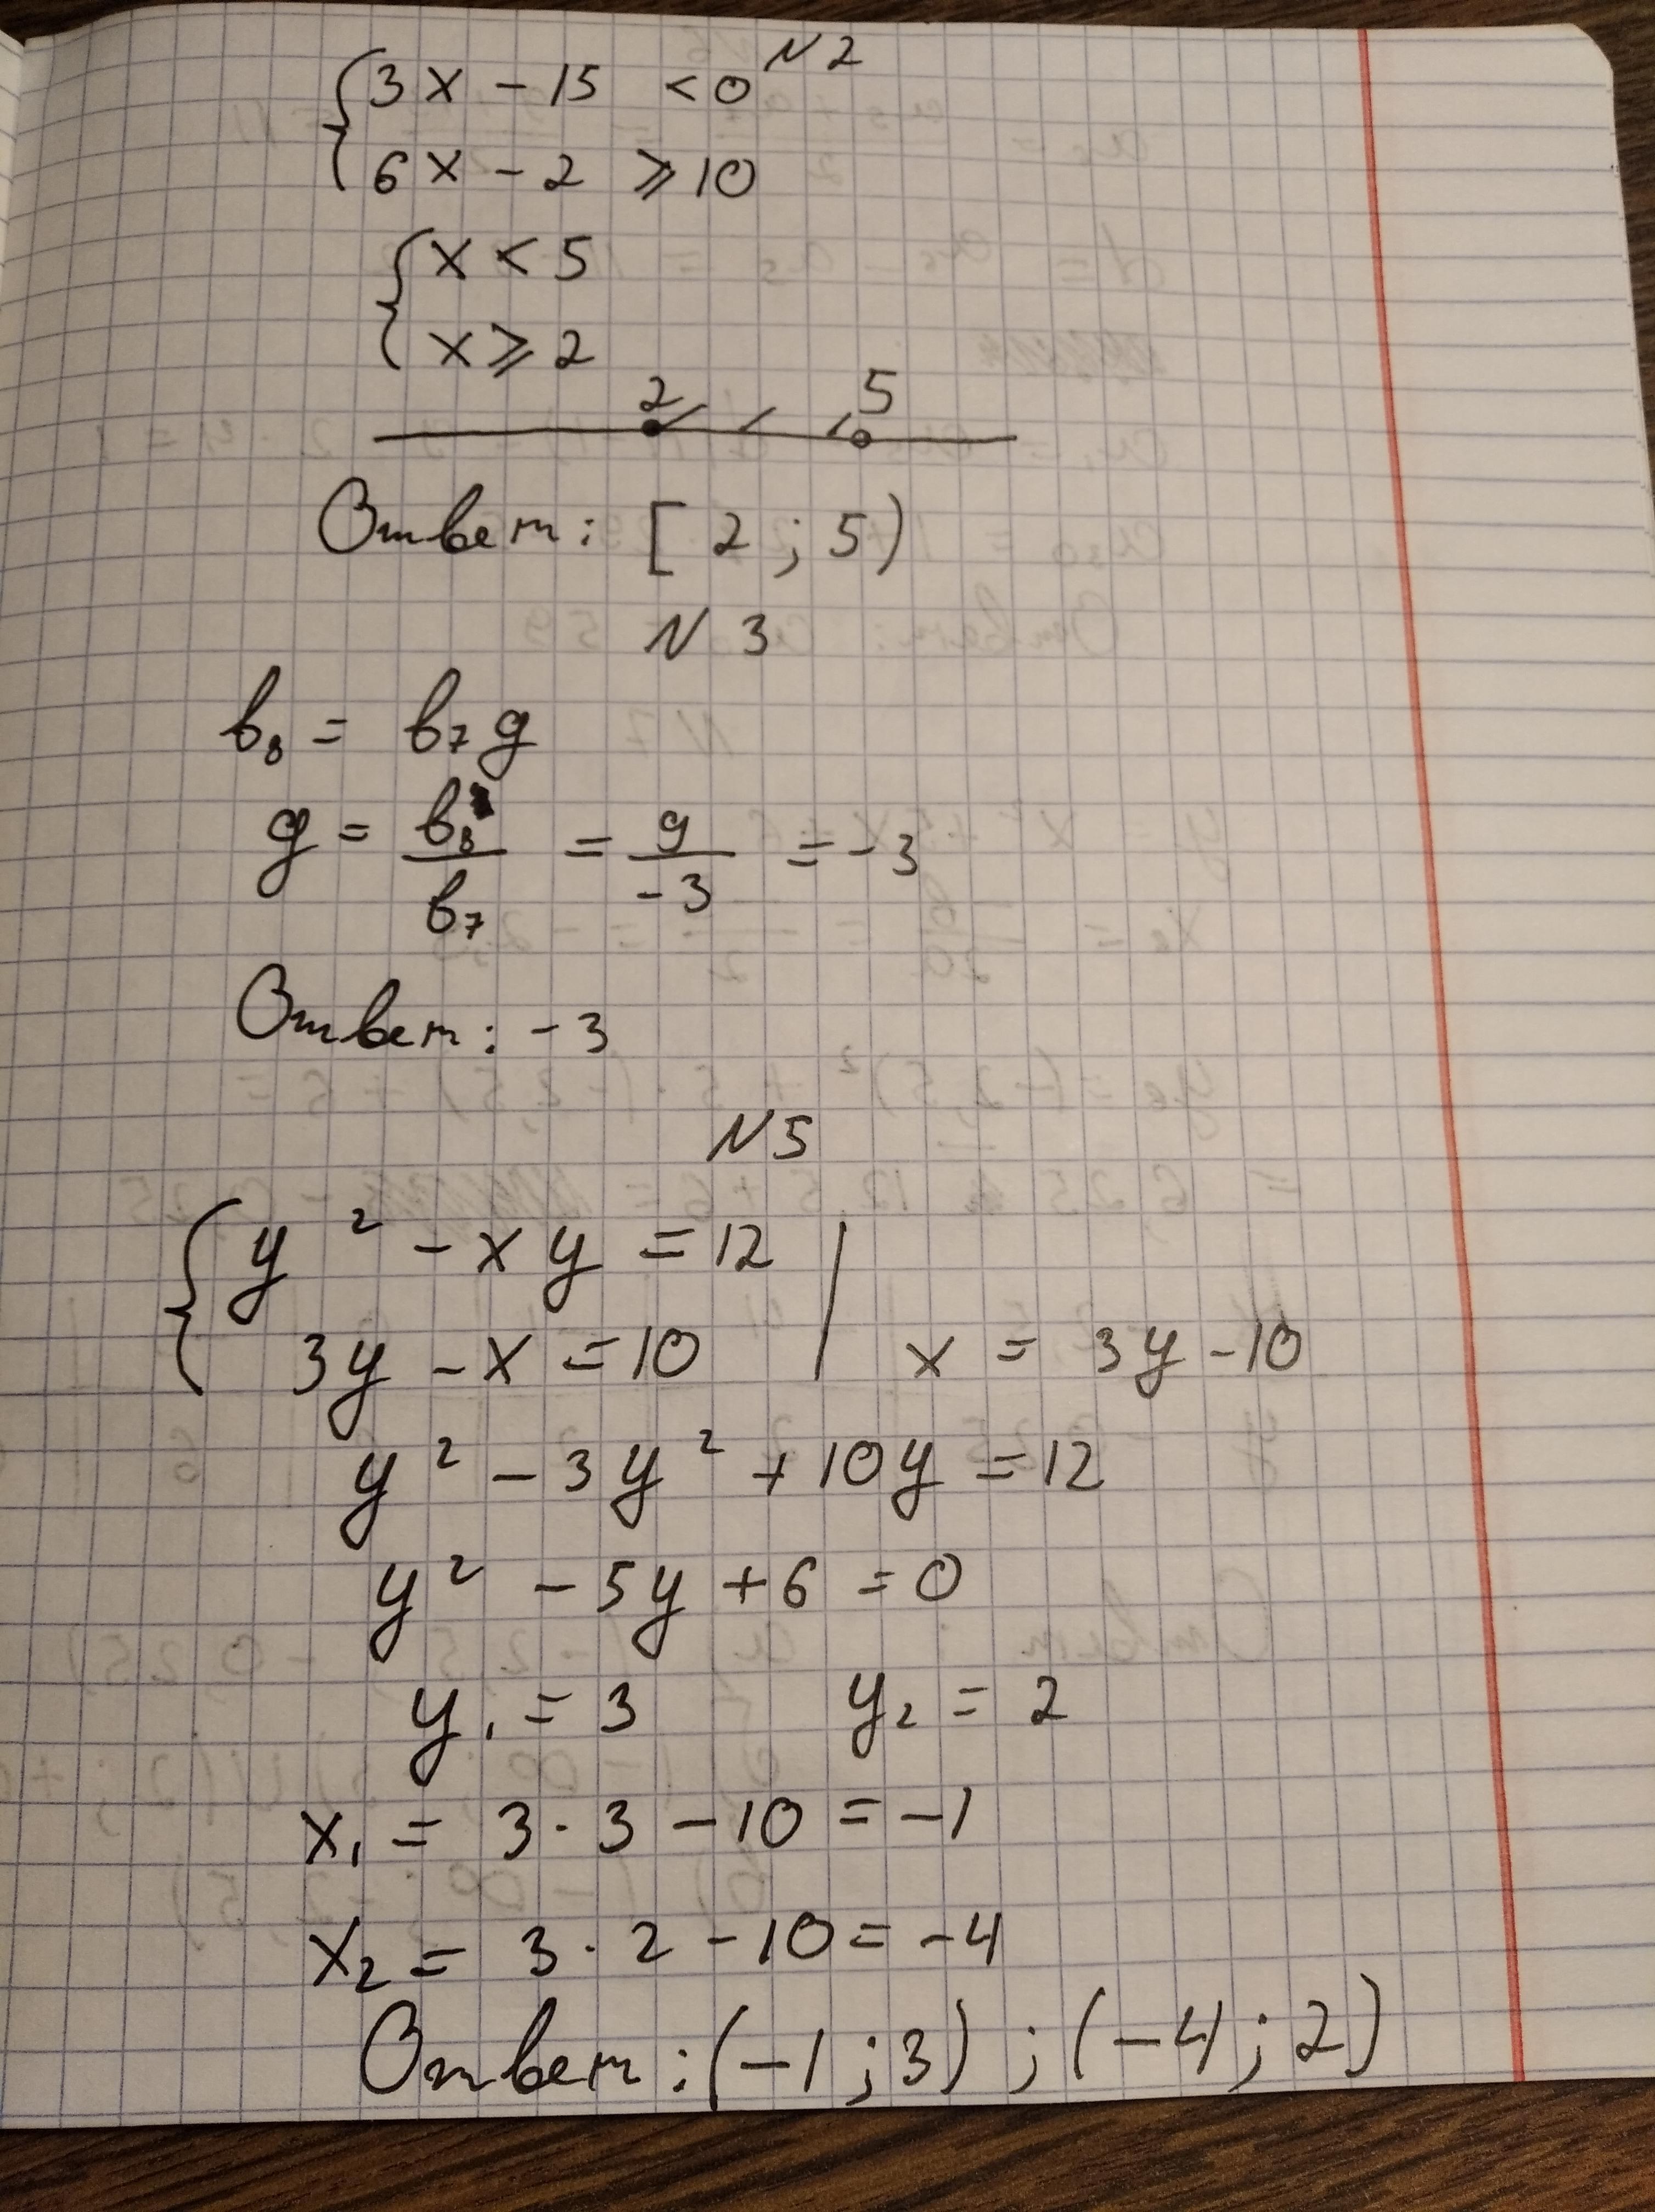 N2
{3x - 15 < 0
6x - 2 ⩾ 10
{x < 5
x ⩾ 2
2 5
Ответ: [2; 5)
N 3
b₈ = b₇ g
g = b₈/b₇ = 9/-3 = -3
Ответ: -3
N5
{y² - xy = 12 |
3y - x = 10 | x = 3y - 10
y² - 3y² + 10y = 12
y² - 5y + 6 = 0
y₁ = 3 y₂ = 2
x₁ = 3 · 3 - 10 = -1
x₂ = 3 · 2 - 10 = -4
Ответ: (-1; 3); (-4; 2)